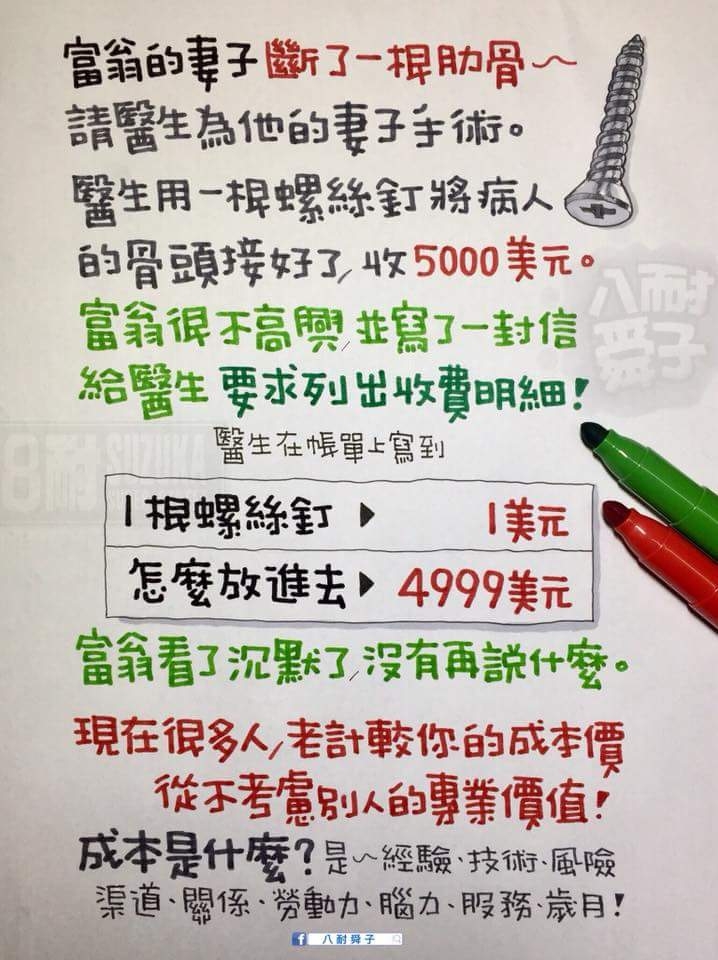 富翁的妻子斷了一根肋骨～
請醫生為他的妻子手術。
醫生用一根螺絲釘將病人
的骨頭接好了，收5000美元。
富翁很不高興，並寫了一封信
給醫生要求列出收費明細！
醫生在帳單上寫到
1根螺絲釘▶1美元
怎麼放進去▶4999美元
富翁看了沉默了，沒有再說什麼。
現在很多人，老計較你的成本價
從不考慮別人的專業價值！
成本是什麼？是～經驗、技術、風險
渠道、關係、勞動力、腦力、服務、歲月！
八耐舜子
八耐
舜子
8耐SUZUKA